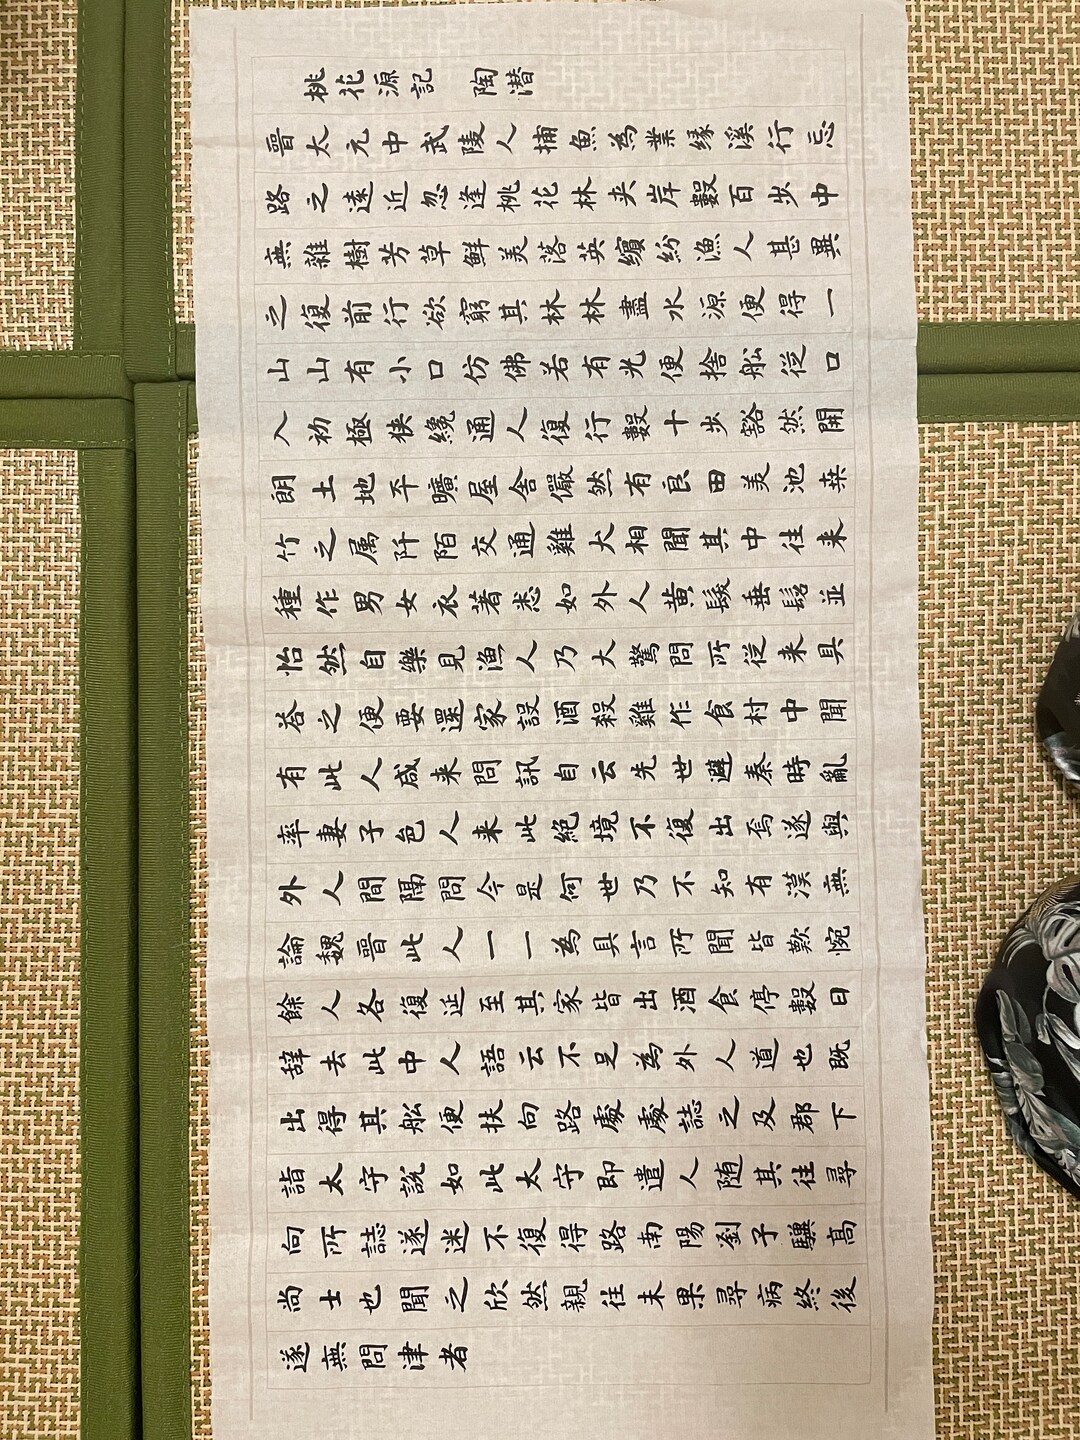 桃花源記　陶潜
晉太元中武陵人捕魚為業緣溪行忘
路之遠近忽逢桃花林夹岸數百步中
無雜樹芳草鮮美落英繽紛漁人甚異
之復前行欲窮其林林盡水源便得一
山山有小口仿佛若有光便捨船従口
入初極狹纔通人復行數十步豁然開
朗土地平曠屋舍儼然有良田美池桒
竹之属阡陌交通雞犬相聞其中往来
種作男女衣著悉如外人黄髮垂髫並
怡然自樂見漁人乃大驚問所従来具
荅之便要還家設酒殺雞作食村中聞
有此人咸来問訊自云先世避秦時亂
率妻子邑人来此絶境不復出焉遂與
外人間隔問今是何世乃不知有漢無
論魏晉此人一一為具言所聞皆歎惋
餘人各復延至其家皆出酒食停數日
辞去此中人語云不足為外人道也既
出得其船便扶向路處處誌之及郡下
詣太守説如此太守即遣人随其往尋
向所誌遂迷不復得路南陽劉子驥高
尚士也聞之欣然親往未果尋病終後
遂無問津者